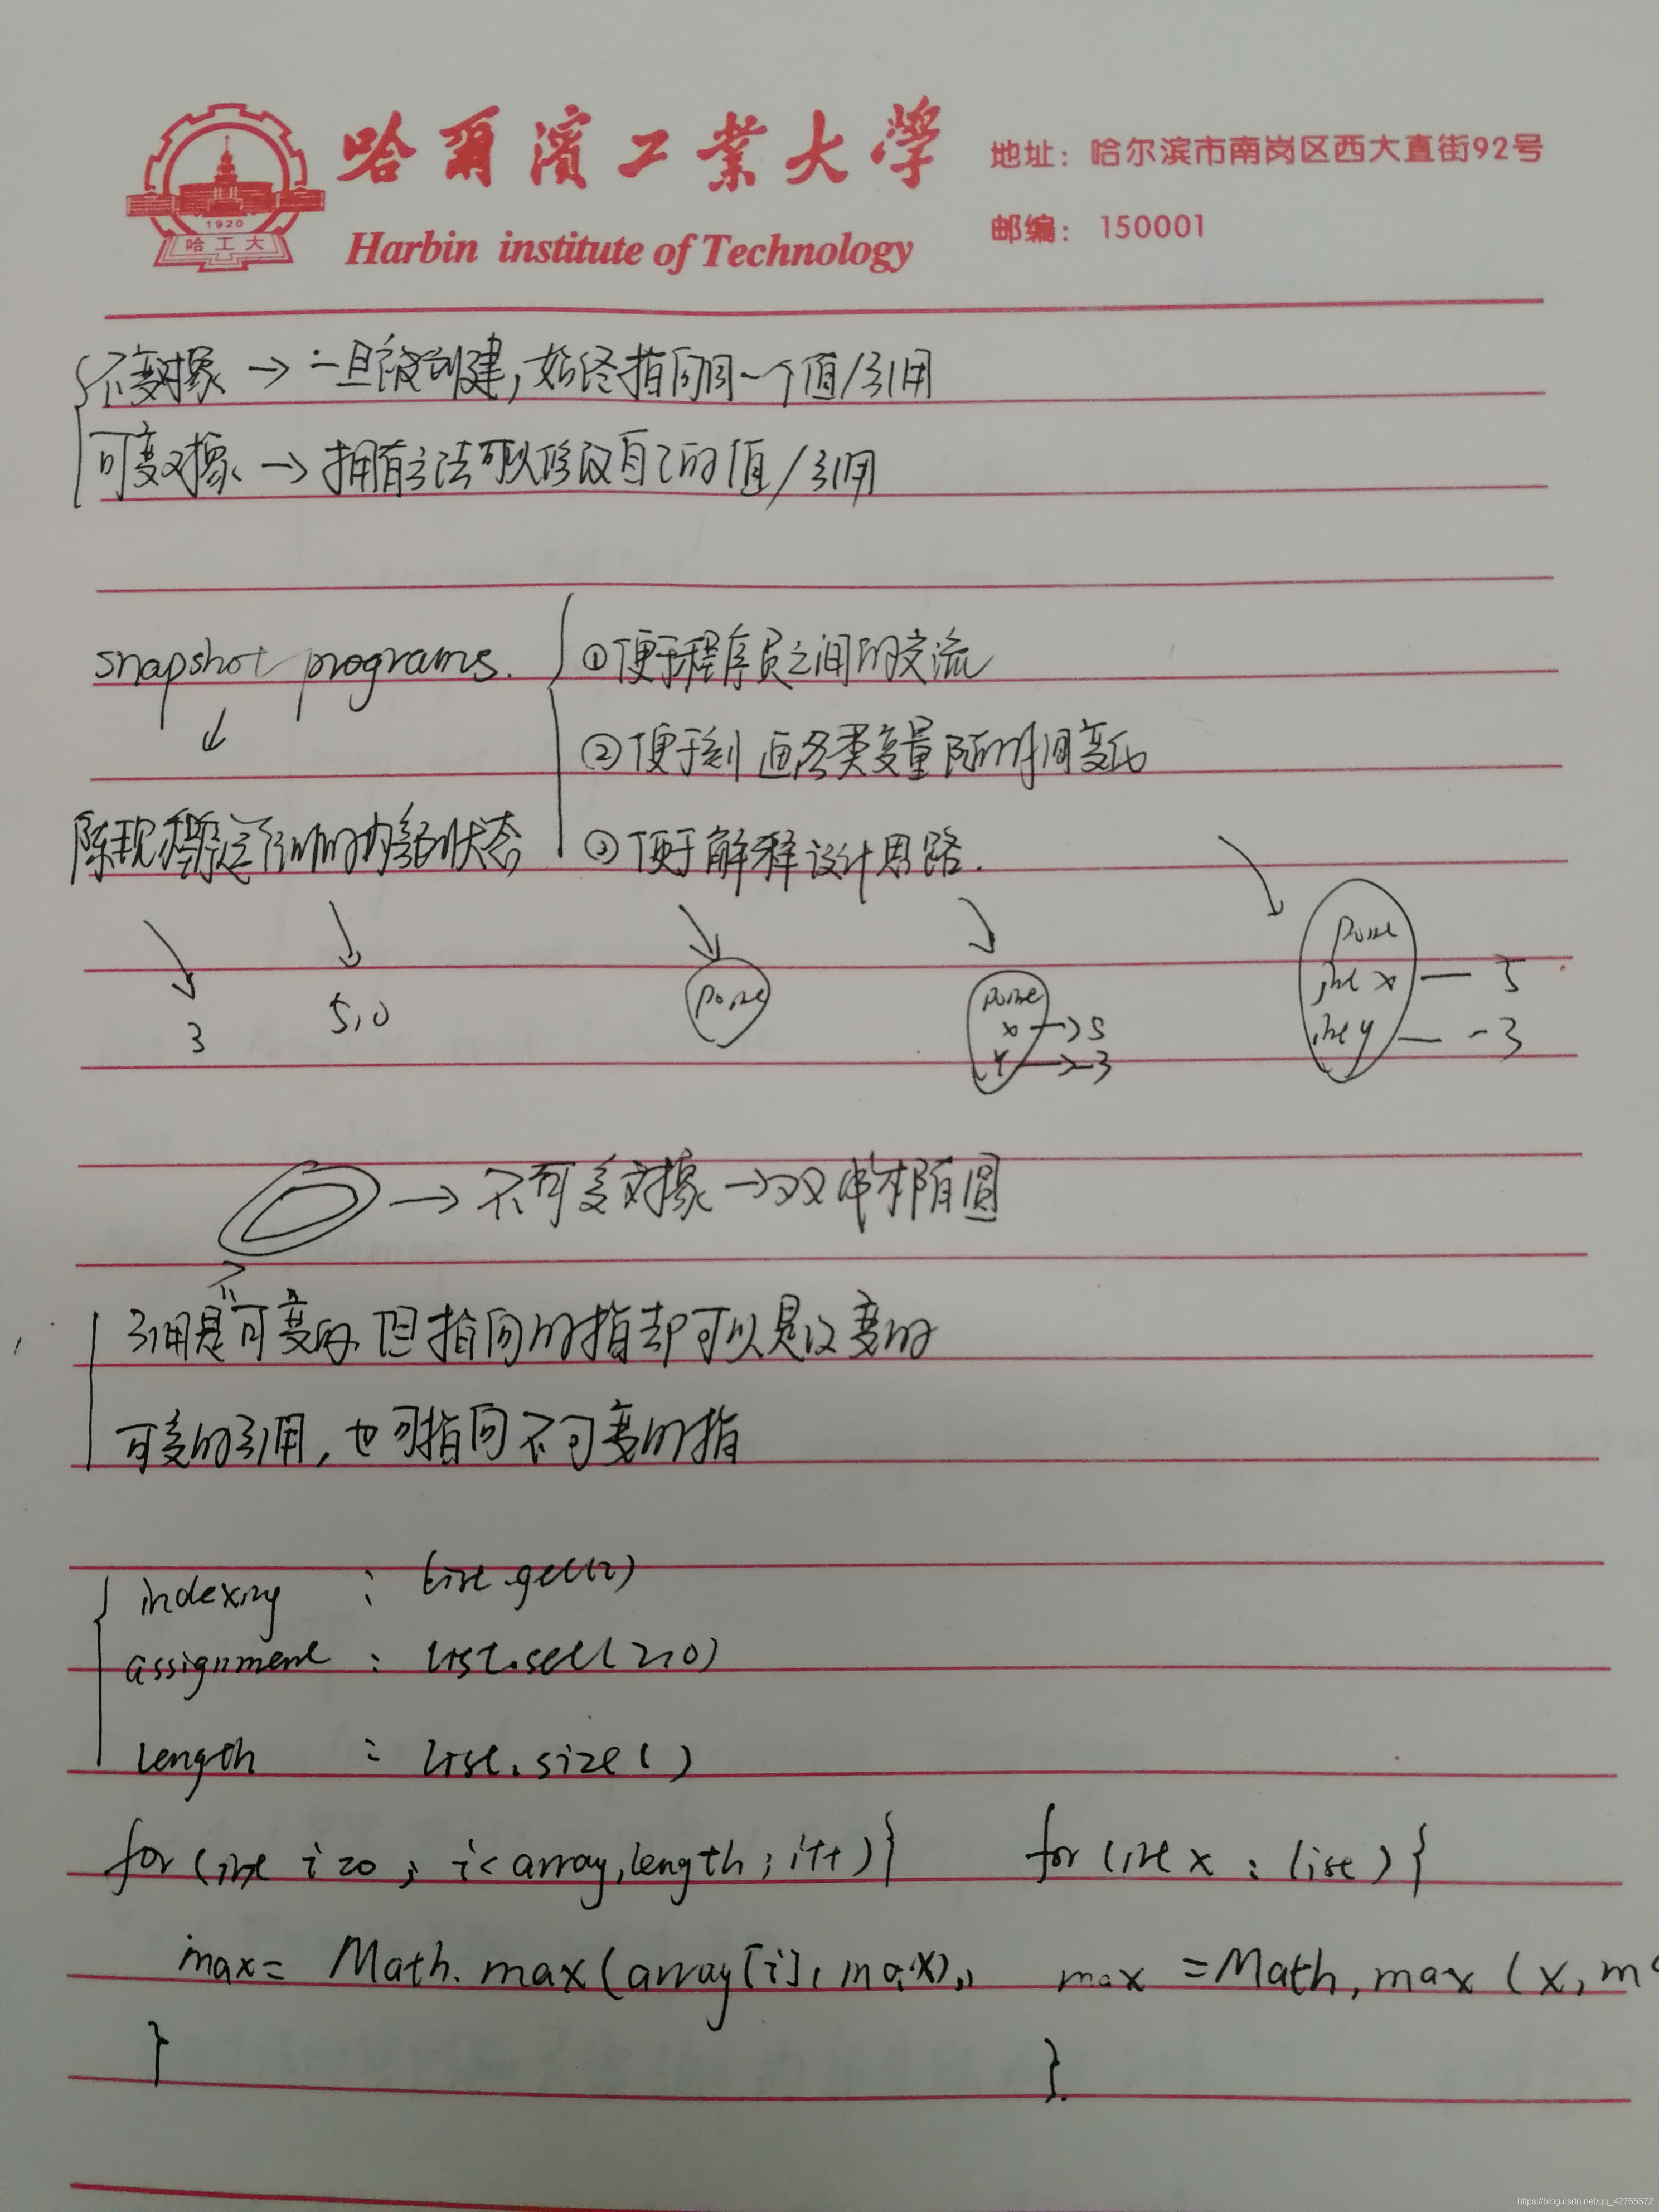 哈爾濱工業大學
Harbin institute of Technology
地址：哈尔滨市南岗区西大直街92号
邮编：150001
1920
哈工大
不变对象 → 一旦被创建,始终指向同一个值/引用
可变对象 → 拥有方法可以修改自己的值/引用
snapshot programs.
①便于程序员之间的交流
②便于刻画各类变量随时间变化
陈现程序运行时的内部状态
③便于解释设计思路.
3
5,0
x → 5
y → -3
int x — 5
int y — -3
→ 不可变对象 → 双线椭圆
引用是不可变的 但指向的指却可以是改变的
可变的引用,也可指向不可变的指
indexing : list.get(2)
assignment : list.set(2,0)
length : list.size()
for (int i=0; i<array.length; i++){
for (int x : list){
max = Math.max(array[i], max);
max = Math.max(x, m
}
}.
https://blog.csdn.net/qq_42765672